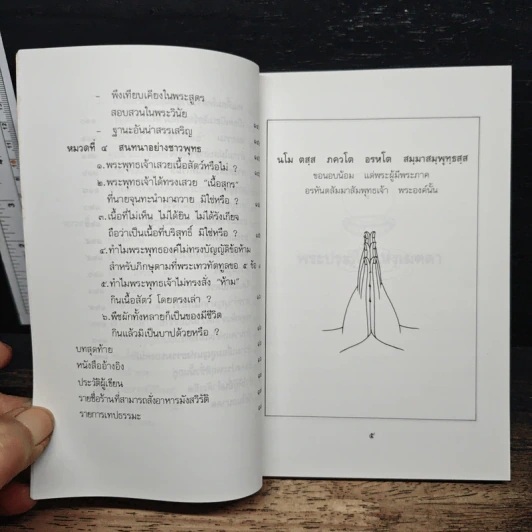 - พึงเทียบเคียงในพระสูตร
สอบสวนในพระวินัย
- ฐานะอันน่าสรรเสริญ
หมวดที่ ๔ สนทนาอย่างชาวพุทธ
๑.พระพุทธเจ้าเสวยเนื้อสัตว์หรือไม่ ?
๒.พระพุทธเจ้าได้ทรงเสวย "เนื้อสุกร"
ที่นายจุนทะนำมาถวาย มิใช่หรือ ?
๓.เนื้อที่ไม่เห็น ไม่ได้ยิน ไม่ได้รังเกียจ
ถือว่าเป็นเนื้อที่บริสุทธิ์ มิใช่หรือ ?
๔.ทำไมพระพุทธองค์ไม่ทรงบัญญัติข้อห้าม
สำหรับภิกษุตามที่พระเทวทัตทูลขอ ๕ ข้อ
๕.ทำไมพระพุทธเจ้าไม่ทรงสั่ง "ห้าม"
กินเนื้อสัตว์ โดยตรงเล่า ?
๖.พืชผักทั้งหลายก็เป็นของมีชีวิต
กินแล้วมิเป็นบาปด้วยหรือ ?
บทสุดท้าย
หนังสืออ้างอิง
ประวัติผู้เขียน
รายชื่อร้านที่สามารถสั่งอาหารมังสวิรัติ
รายการเทปธรรมะ
นโม ตสฺส ภควโต อรหโต สมฺมาสมฺพุทฺธสฺส
ขอนอบน้อม แด่พระผู้มีพระภาค
อรหันตสัมมาสัมพุทธเจ้า พระองค์นั้น
๕